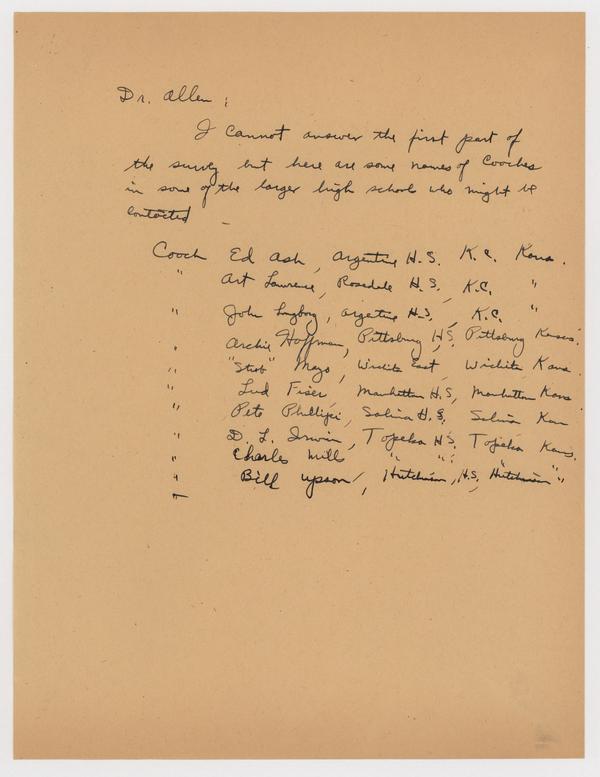 Dr. Allen:
I cannot answer the first part of
the survey but here are some names of Coaches
in some of the larger high schools who might be
contacted –
Coach Ed Ash, Argentine H.S. K.C. Kans.
" Art Lawrence, Rosedale H.S., K.C. "
" John Lungborg, Argentine H.S., K.C. "
" Archie Hoffman, Pittsburg H.S. Pittsburg Kansas.
" "Stub" Mayo, Wichita East, Wichita Kans.
" Lud Fiser, Manhattan H.S, Manhattan Kans
" Pete Phillipi, Salina H.S. Salina Kan
" D. L. Irwin, Topeka H.S. Topeka Kans.
" Charles Mills " " " "
" Bill Upson, Hutchinson, H.S, Hutchinson "
"